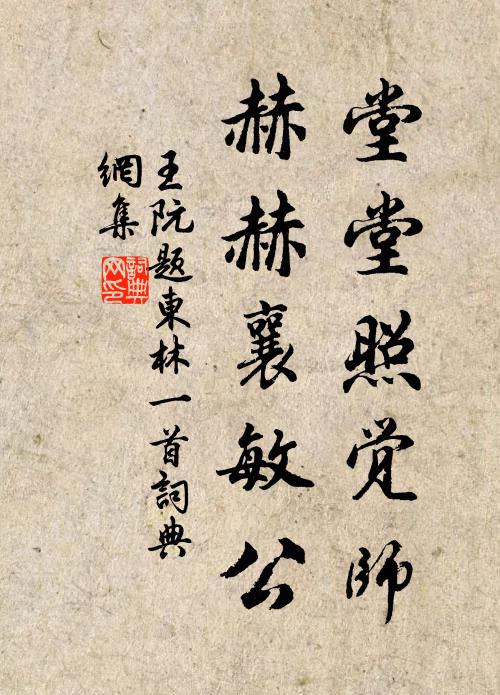 堂堂照觉師
赫赫襄敏公
王阮题東林一首詞典
網集
詞典
网印